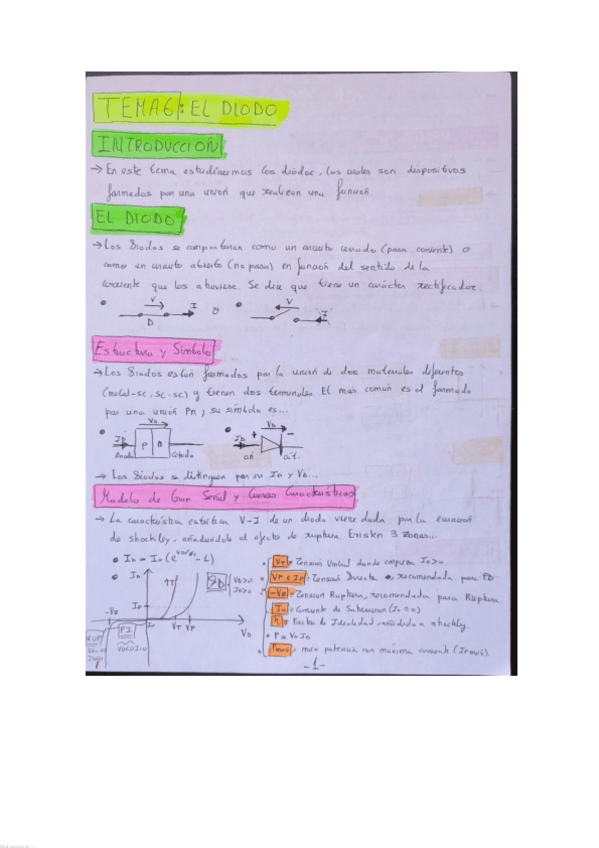 TEMA6: EL DIODO
INTRODUCCIÓN
→ En este tema estudiaremos los diodos, los cuales son dispositivos
formados por una unión que realizan una función.
EL DIODO
→ Los Diodos se comportaran como un circuito cerrado (pasa corriente) o
como un circuito abierto (no pasa) en función del sentido de la
corriente que los atraviese. Se dice que tiene un carácter rectificador.
V I D o V I
Estructura y Símbolo
→ Los Diodos están formados por la unión de dos materiales diferentes
(metal-sc, sc-sc) y tienen dos terminales. El mas común es el formado
por una unión Pn, su símbolo es...
VD VD
ID P n ID + -
Anodo Catodo an cat.
→ Los Diodos se distinguen por su ID y VD...
Modelo de Gran Señal y Curvas Características
→ La característica estática V-I de un diodo viene dada por la ecuación
de shockley, añadiendole el efecto de ruptura. Existen 3 zonas...
VT = Tensión Umbral donde empieza ID>0
VF e IF = Tensión Directa, recomendada para PD
-VR = Tension Ruptura, recomendada para Ruptura
I0 = Corriente de Saturacion
n = Factor de Idealidad añadido a shockley.
P = VD ID
Pmax = max potencia con máxima corriente
ID
IF
-VR
PI
VT VF VD
RUP
-1-